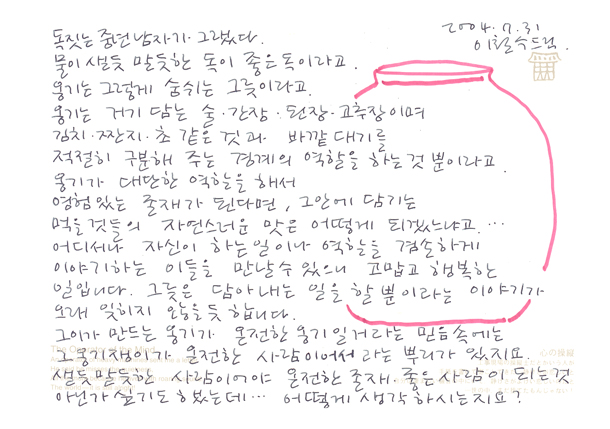 2004. 7. 31
이철수드림.
독짓는 중년 남자가 그랬다.
물이 샐듯 말듯한 독이 좋은 독이라고.
옹기는 그렇게 숨쉬는 그릇이라고.
옹기는 거기 담는 술·간장·된장·고추장이며
김치·짠지·초 같은 것과 바깥 대기를
적절히 구분해 주는 경계의 역할을 하는 것 뿐이라고.
옹기가 대단한 역할을 해서
영험있는 존재가 된다면, 그안에 담기는
먹을것들의 자연스러운 맛은 어떻게 되겠냐고. …
어디서나 자신이 하는일이나 역할을 겸손하게
이야기하는 이들을 만날수 있으니 고맙고 행복한
일입니다. 그릇은 담아내는 일을 할 뿐이라는 이야기가
오래 잊히지 않을듯 합니다.
그이가 만드는 옹기가 온전한 옹기일거라는 믿음속에는
그 옹기쟁이가 온전한 사람이어서 라는 뿌리가 있지요.
샐듯말듯한 사람이어야 온전한 존재, 좋은 사람이 되는것
아닌가 싶기도 하셨는데… 어떻게 생각하시는지요?